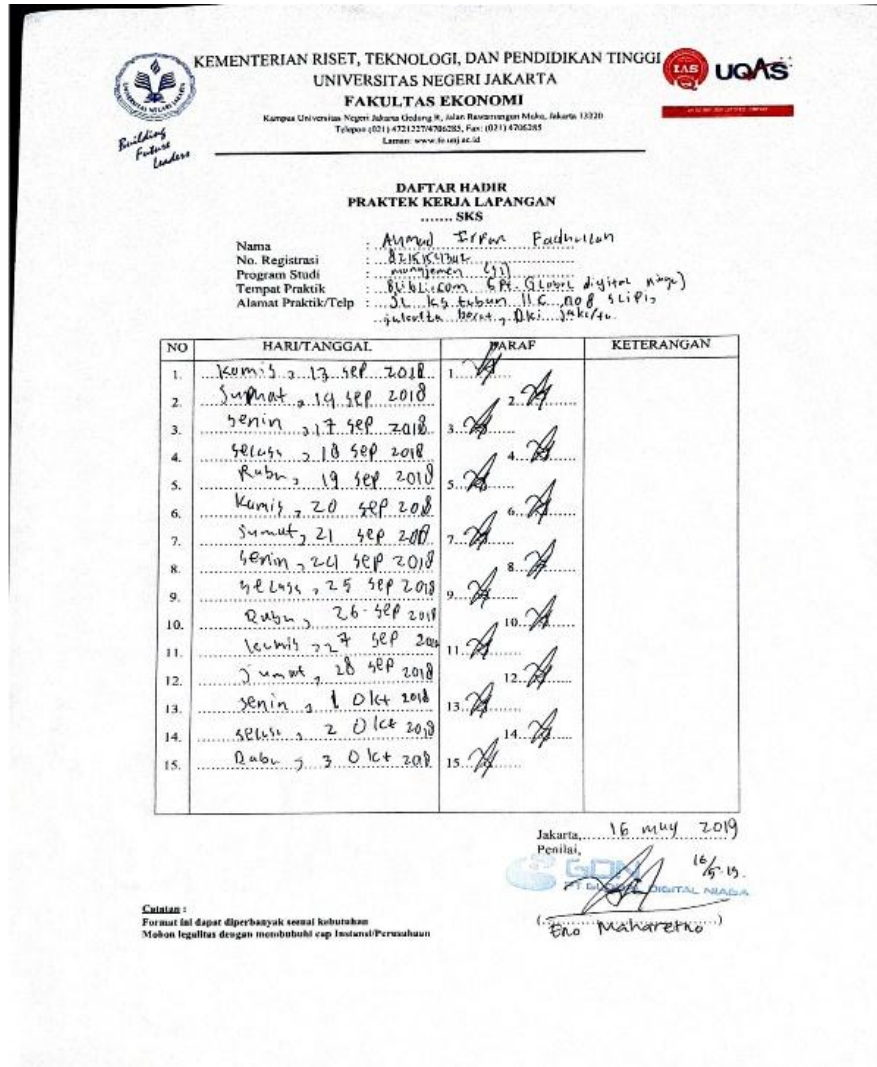 KEMENTERIAN RISET, TEKNOLOGI, DAN PENDIDIKAN TINGGI
UNIVERSITAS NEGERI JAKARTA
FAKULTAS EKONOMI
Kampus Universitas Negeri Jakarta Gedung R, Jalan Rawamangun Muka, Jakarta 13220
Telepon (021) 4721227/4706285, Fax: (021) 4706285
Laman: www.fe.unj.ac.id
Building
Future
Leaders
IAS
UQAS
DAFTAR HADIR
PRAKTEK KERJA LAPANGAN
....... SKS
Nama : Ahmad Irfan Fadhullah
No. Registrasi :
Program Studi : manajemen (S1)
Tempat Praktik : Blibli.com (PT. Global digital niaga)
Alamat Praktik/Telp : JL k.s tubun IIC no 8 SLIPI,
jakarta barat, Dki jakarta
NO HARI/TANGGAL PARAF KETERANGAN
1. Kamis, 13 sep 2018 1.
2. Jumat, 14 sep 2018 2.
3. senin, 17 sep 2018 3.
4. selasa, 18 sep 2018 4.
5. Rabu, 19 sep 2018 5.
6. Kamis, 20 sep 2018 6.
7. Jumat, 21 sep 2018 7.
8. senin, 24 sep 2018 8.
9. selasa, 25 sep 2018 9.
10. Rabu, 26 sep 2018 10.
11. kamis, 27 sep 2018 11.
12. jumat, 28 sep 2018 12.
13. senin, 1 Okt 2018 13.
14. selasa, 2 Okt 2018 14.
15. Rabu, 3 Okt 2018 15.
Jakarta, 16 may 2019
Penilai,
16/5-19.
GDN
PT GLOBAL DIGITAL NIAGA
(Eno Maharetno)
Catatan :
Format ini dapat diperbanyak sesuai kebutuhan
Mohon legalitas dengan membubuhi cap Instansi/Perusahaan